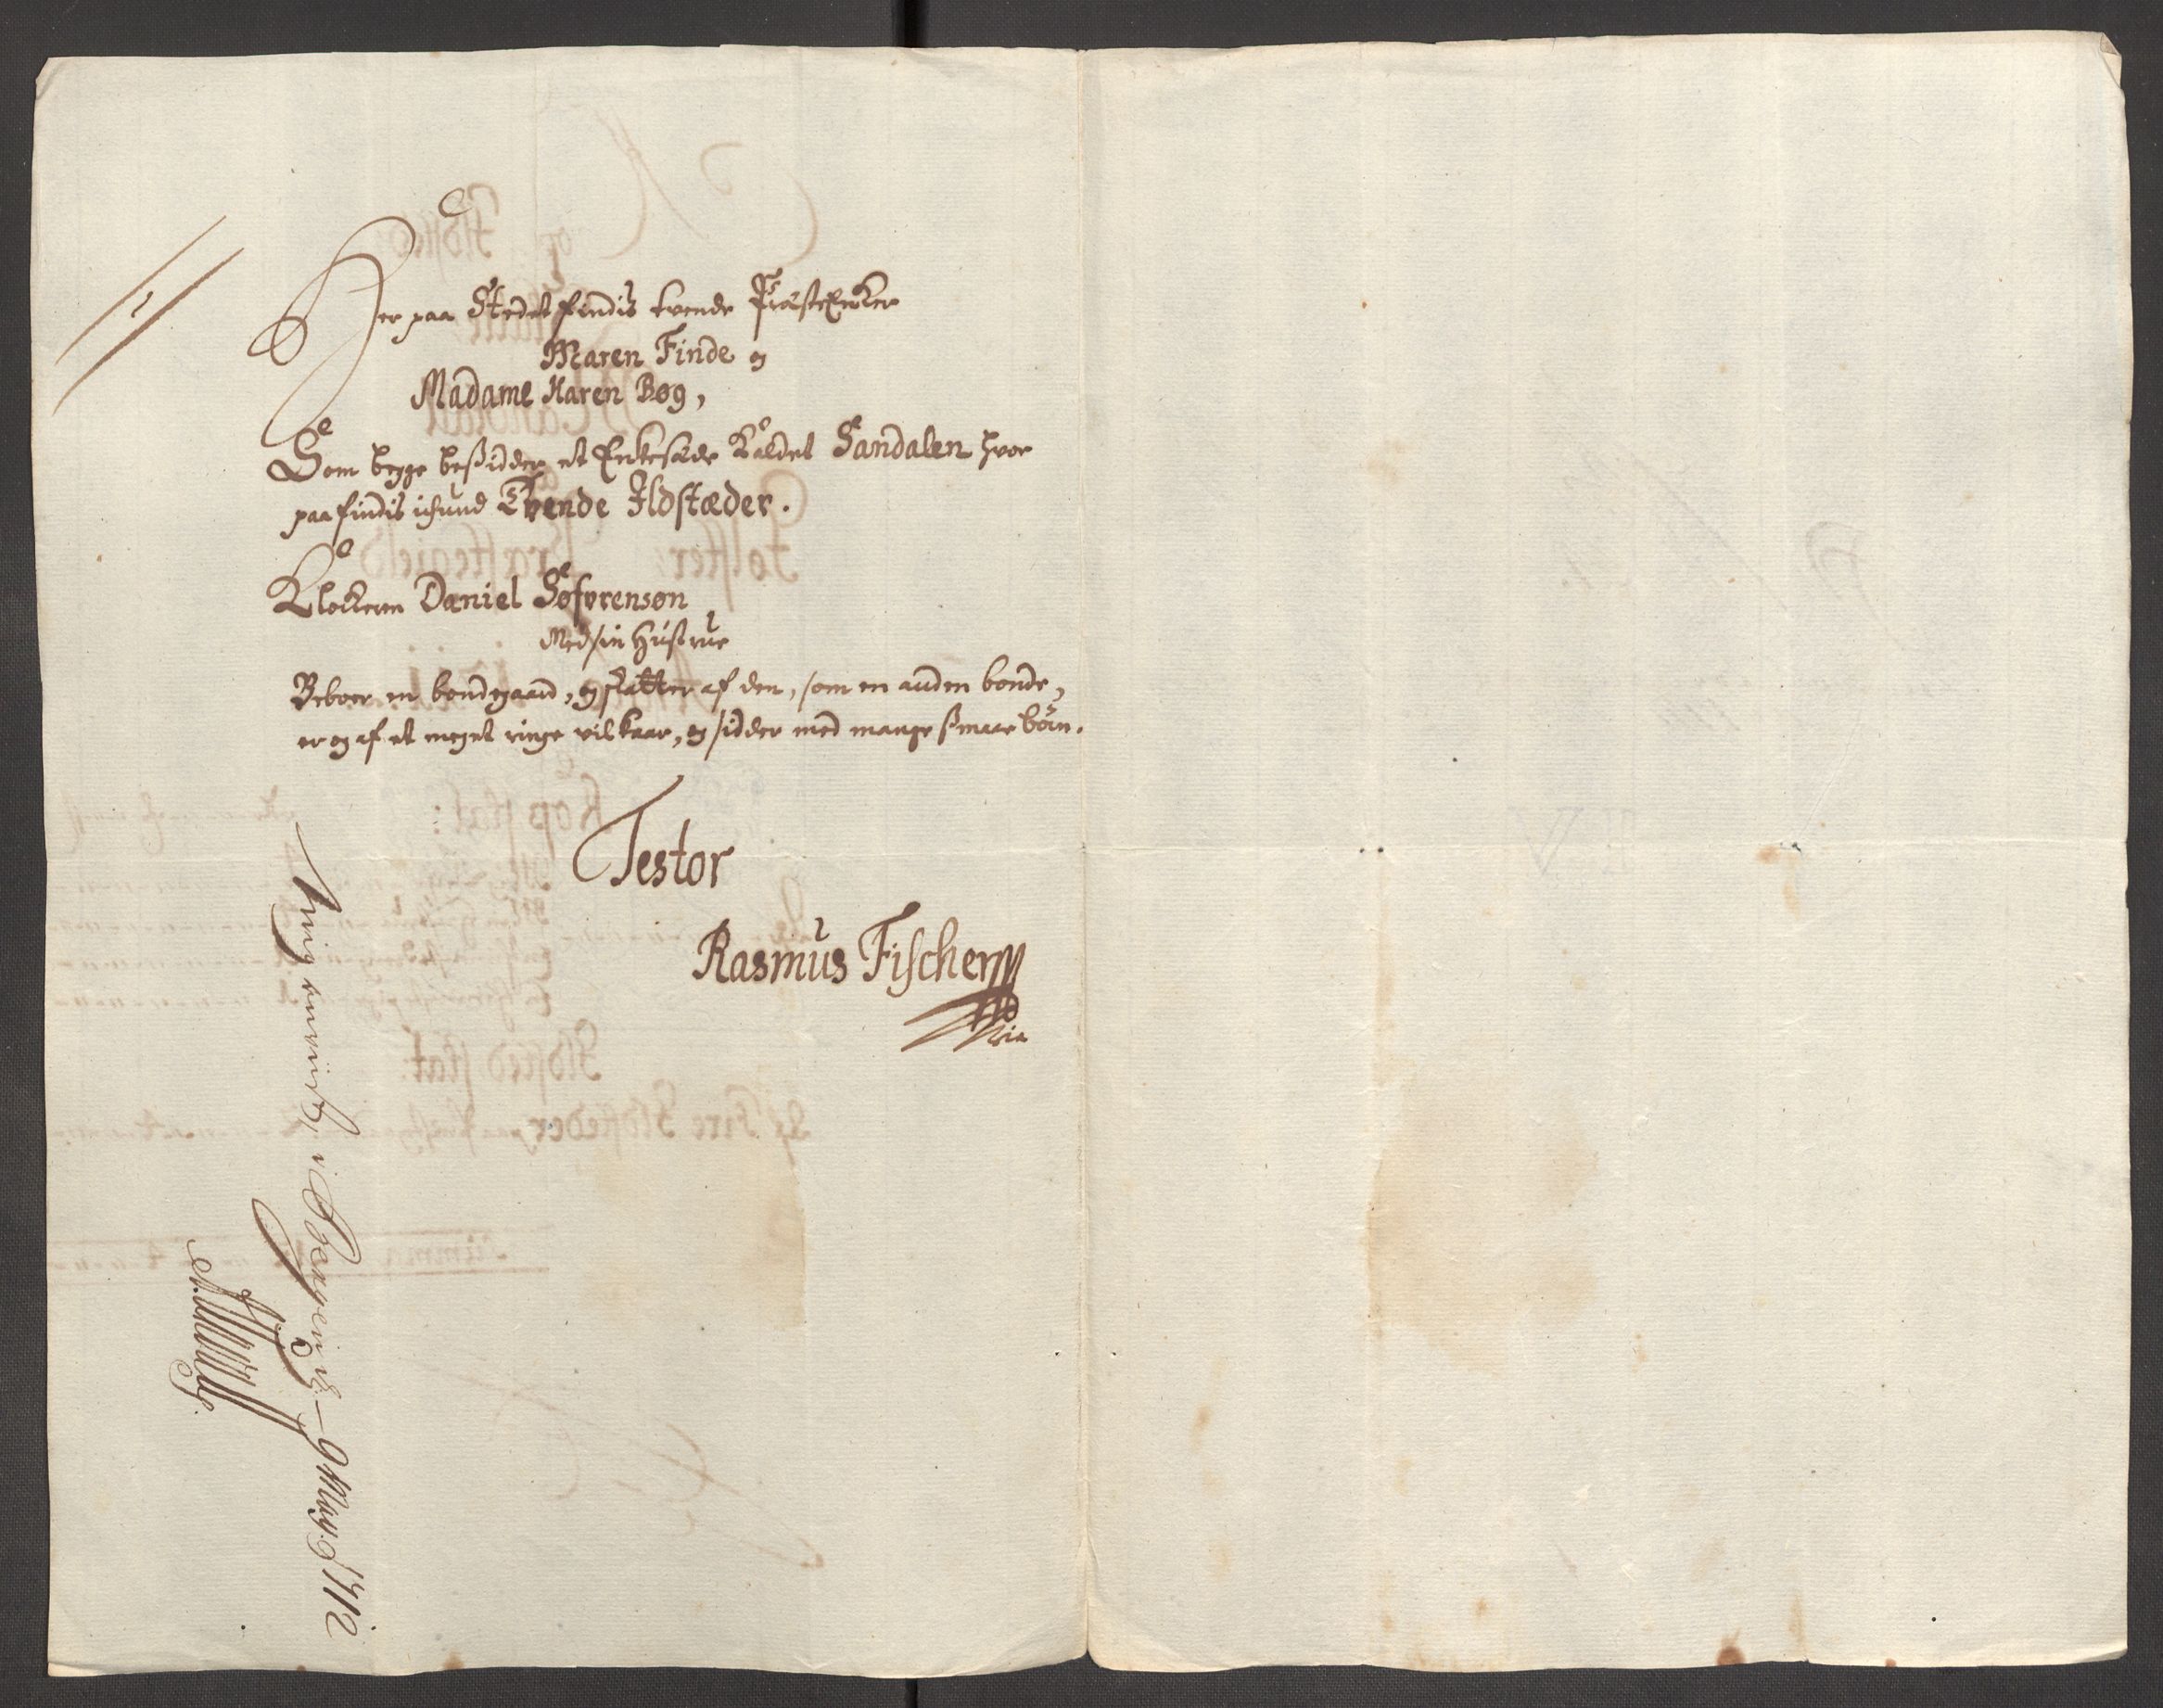 Her paa Stedet findis tvende Præste Encker
Maren Finde og
Madame Karen Bøg,
Som begge besidder et Enkesæde kaldet Sandalen hvor
paa findis ichund Tvende Ildstæder.
Klockeren Daniel Søfvrensøn
Med sin hustrue
Beboer en bondegaard, og skatter af den, som en anden bonde,
er og af et meget ringe vilkaar, og sidder med mange smaae børn.
Testor
Rasmus Fischer
i Bergen d. 9 Maÿ 1712